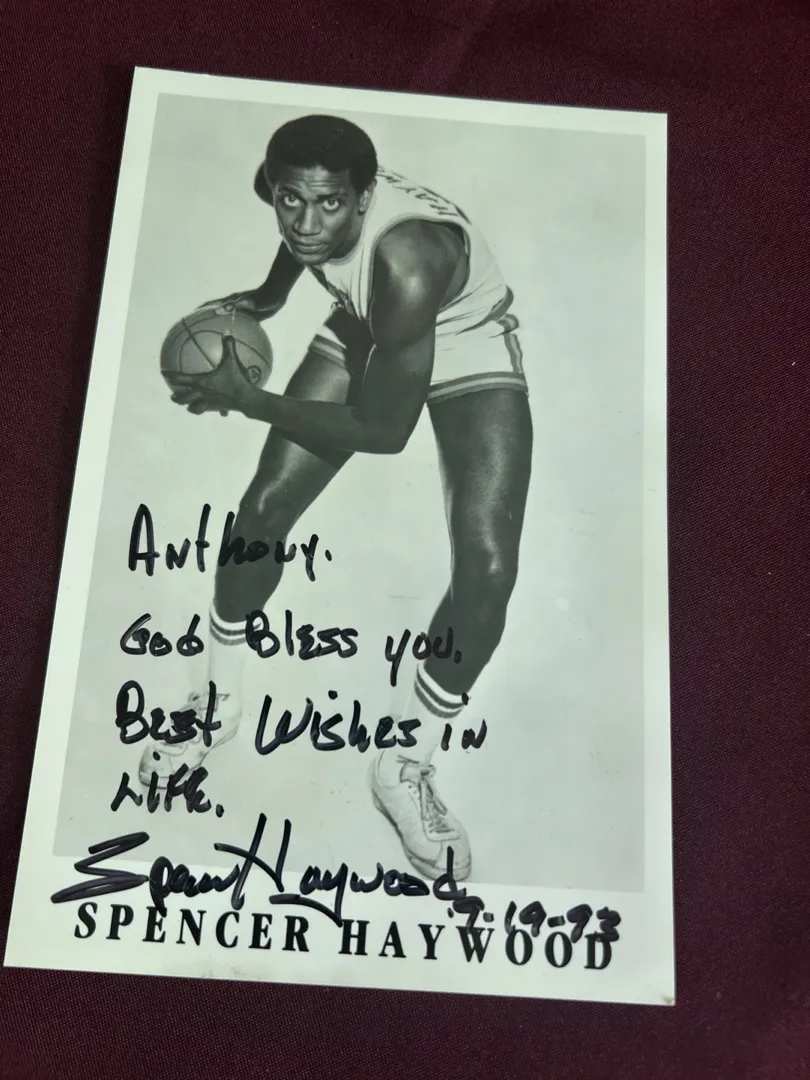 Anthony.
God Bless you.
Best Wishes in
Life.
Spencer Haywood
9-19-93
SPENCER HAYWOOD